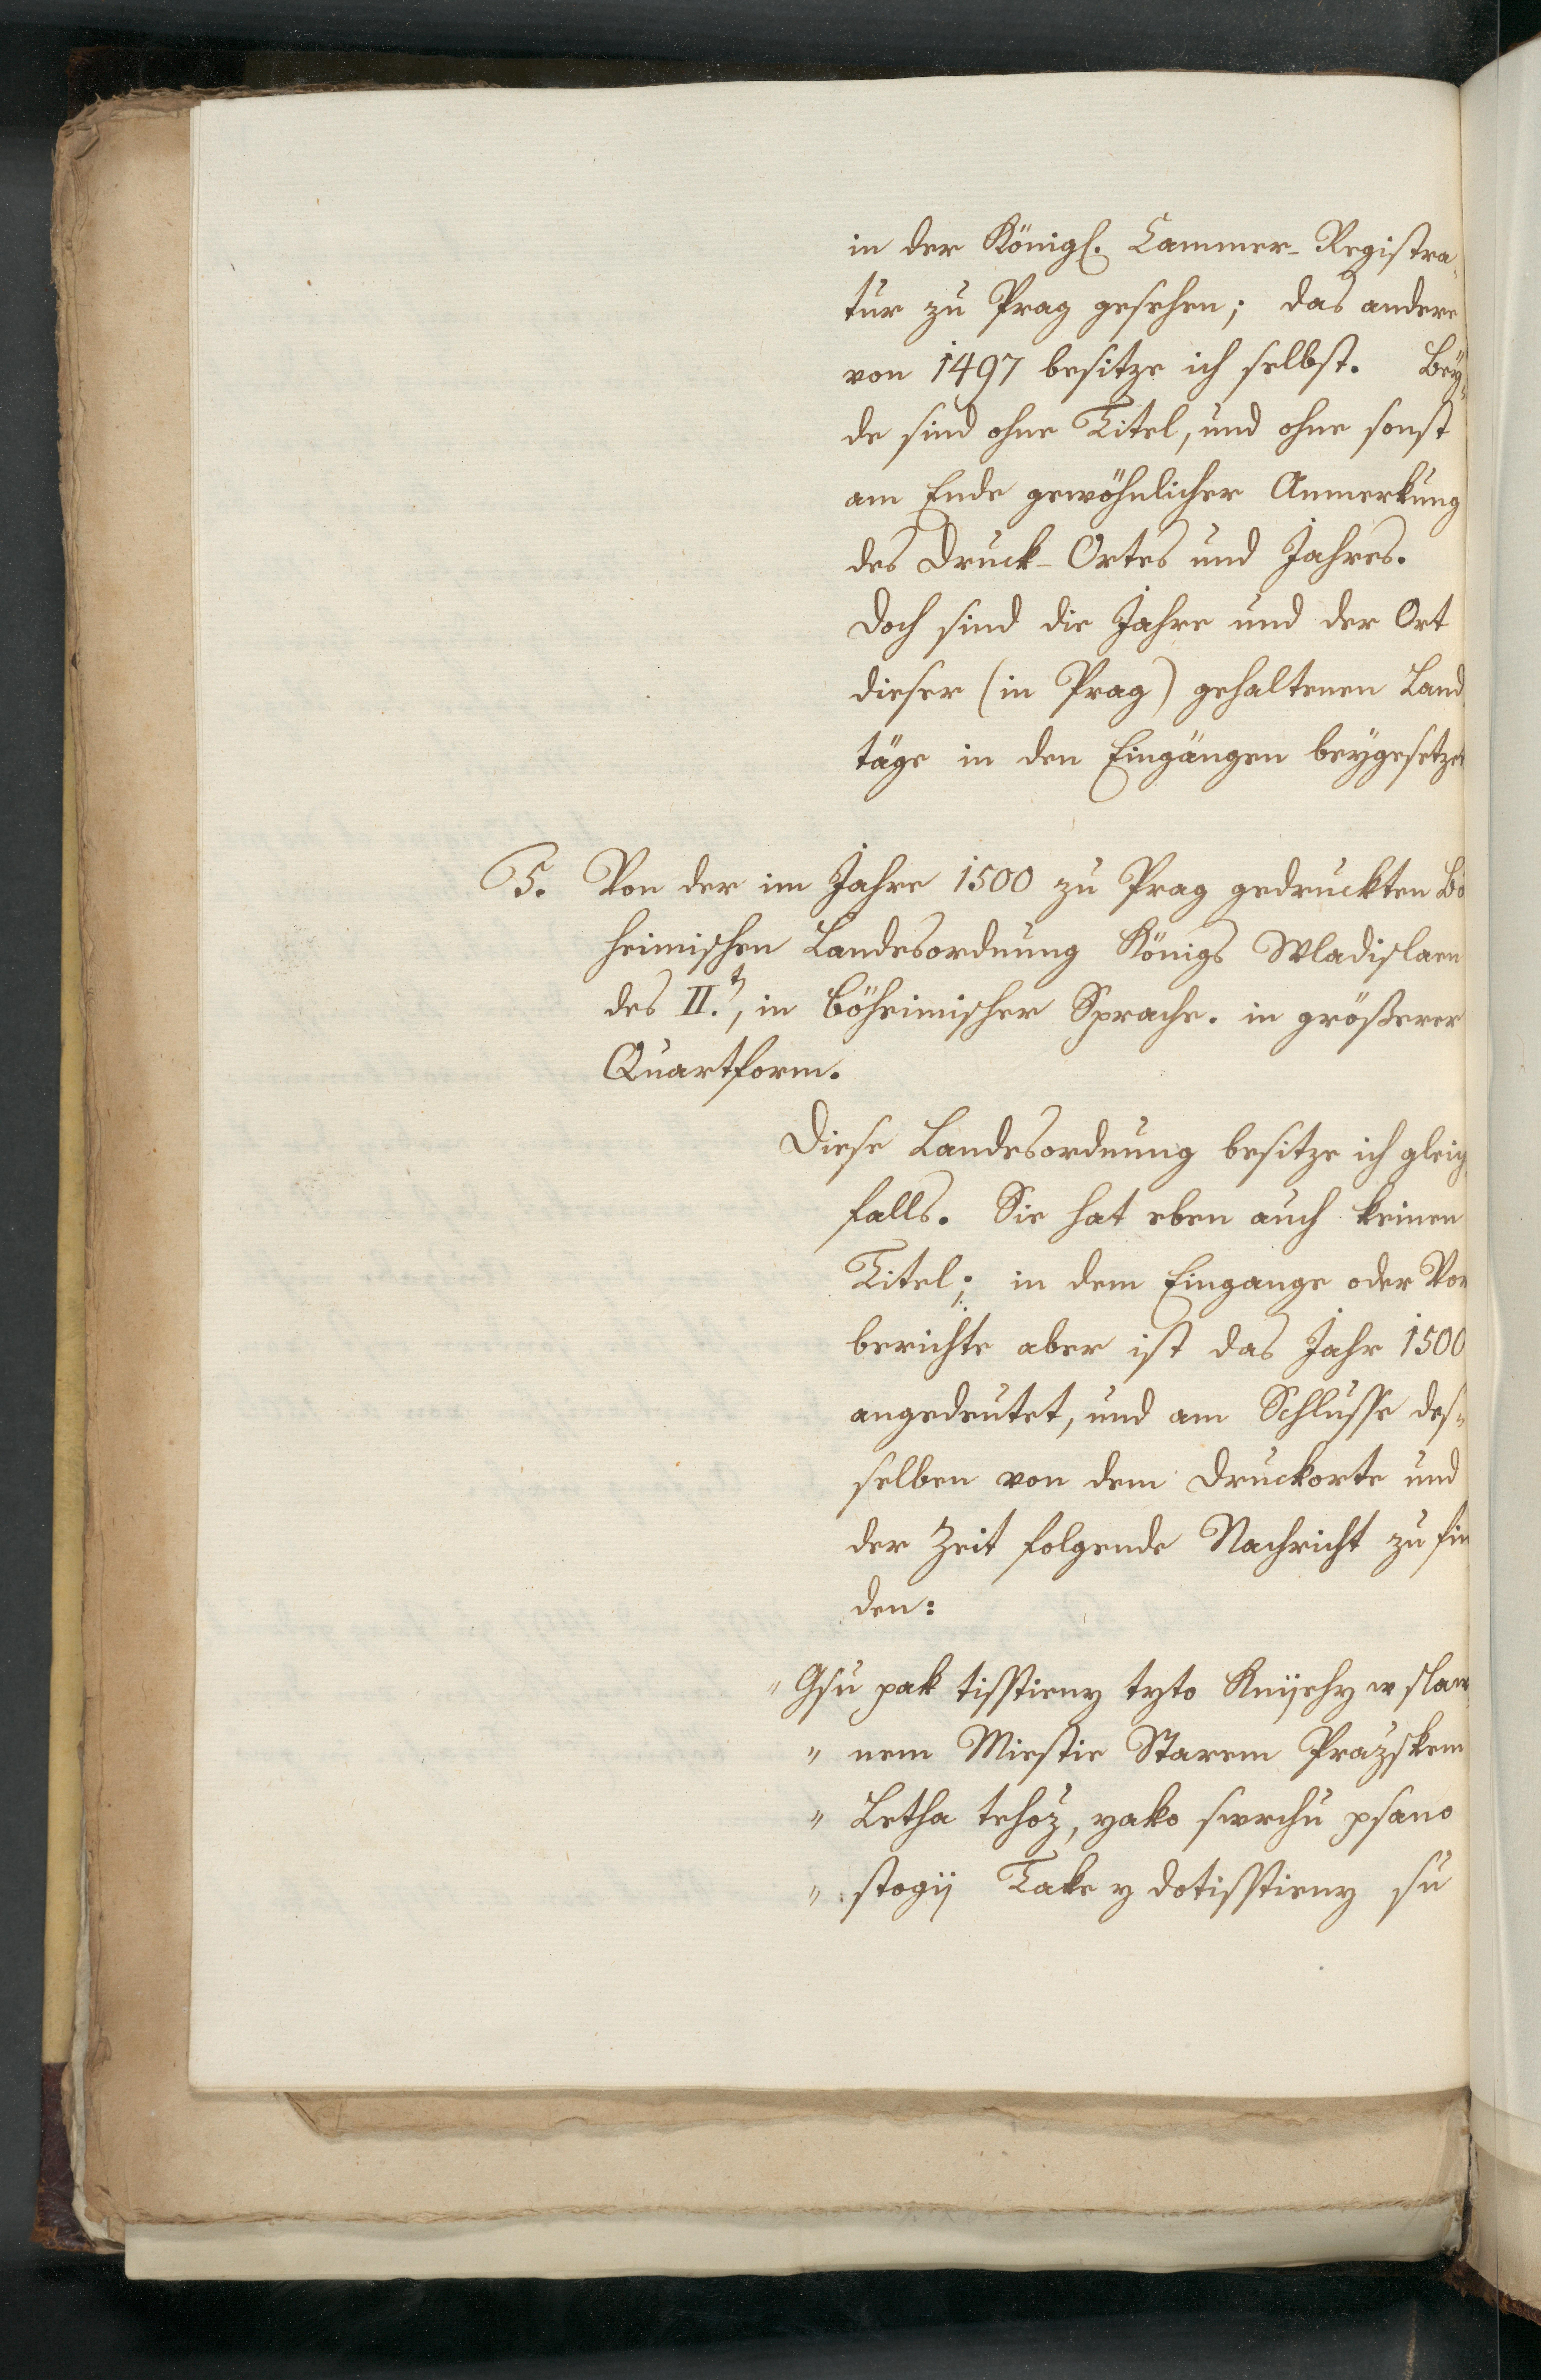 in der Königl. Cammer-Registra-
tur zu Prag gesehen; das andere
von 1497 besitze ich selbst. Bey-
de sind ohne Titel, und ohne sonst
am Ende gewöhnlicher Anmerkung
des Druck-Ortes und Jahres.
Doch sind die Jahre und der Ort
dieser (in Prag) gehaltenen Land
täge in den Eingängen beygesetzet
5. Von der im Jahre 1500 zu Prag gedruckten Bö
heimischen Landesordnung Königs Wladislaen
des II.t, in böheimischer Sprache. in größerer
Quartform.
Diese Landesordnung besitze ich gleich
falls. Sie hat eben auch keinen
Titel; in dem Eingange oder Vor
berichte aber ist das Jahr 1500
angedeutet, und am Schlusse des-
selben von dem Druckorte und
der Zeit folgende Nachricht zu fin
den:
" Gsu pak tisstieny tyto Knijehy w slaw
" nem Miestie Starem Prazskem
" Letha tehoz, yako swrchu psano
" stogij Take y dotisstieny su